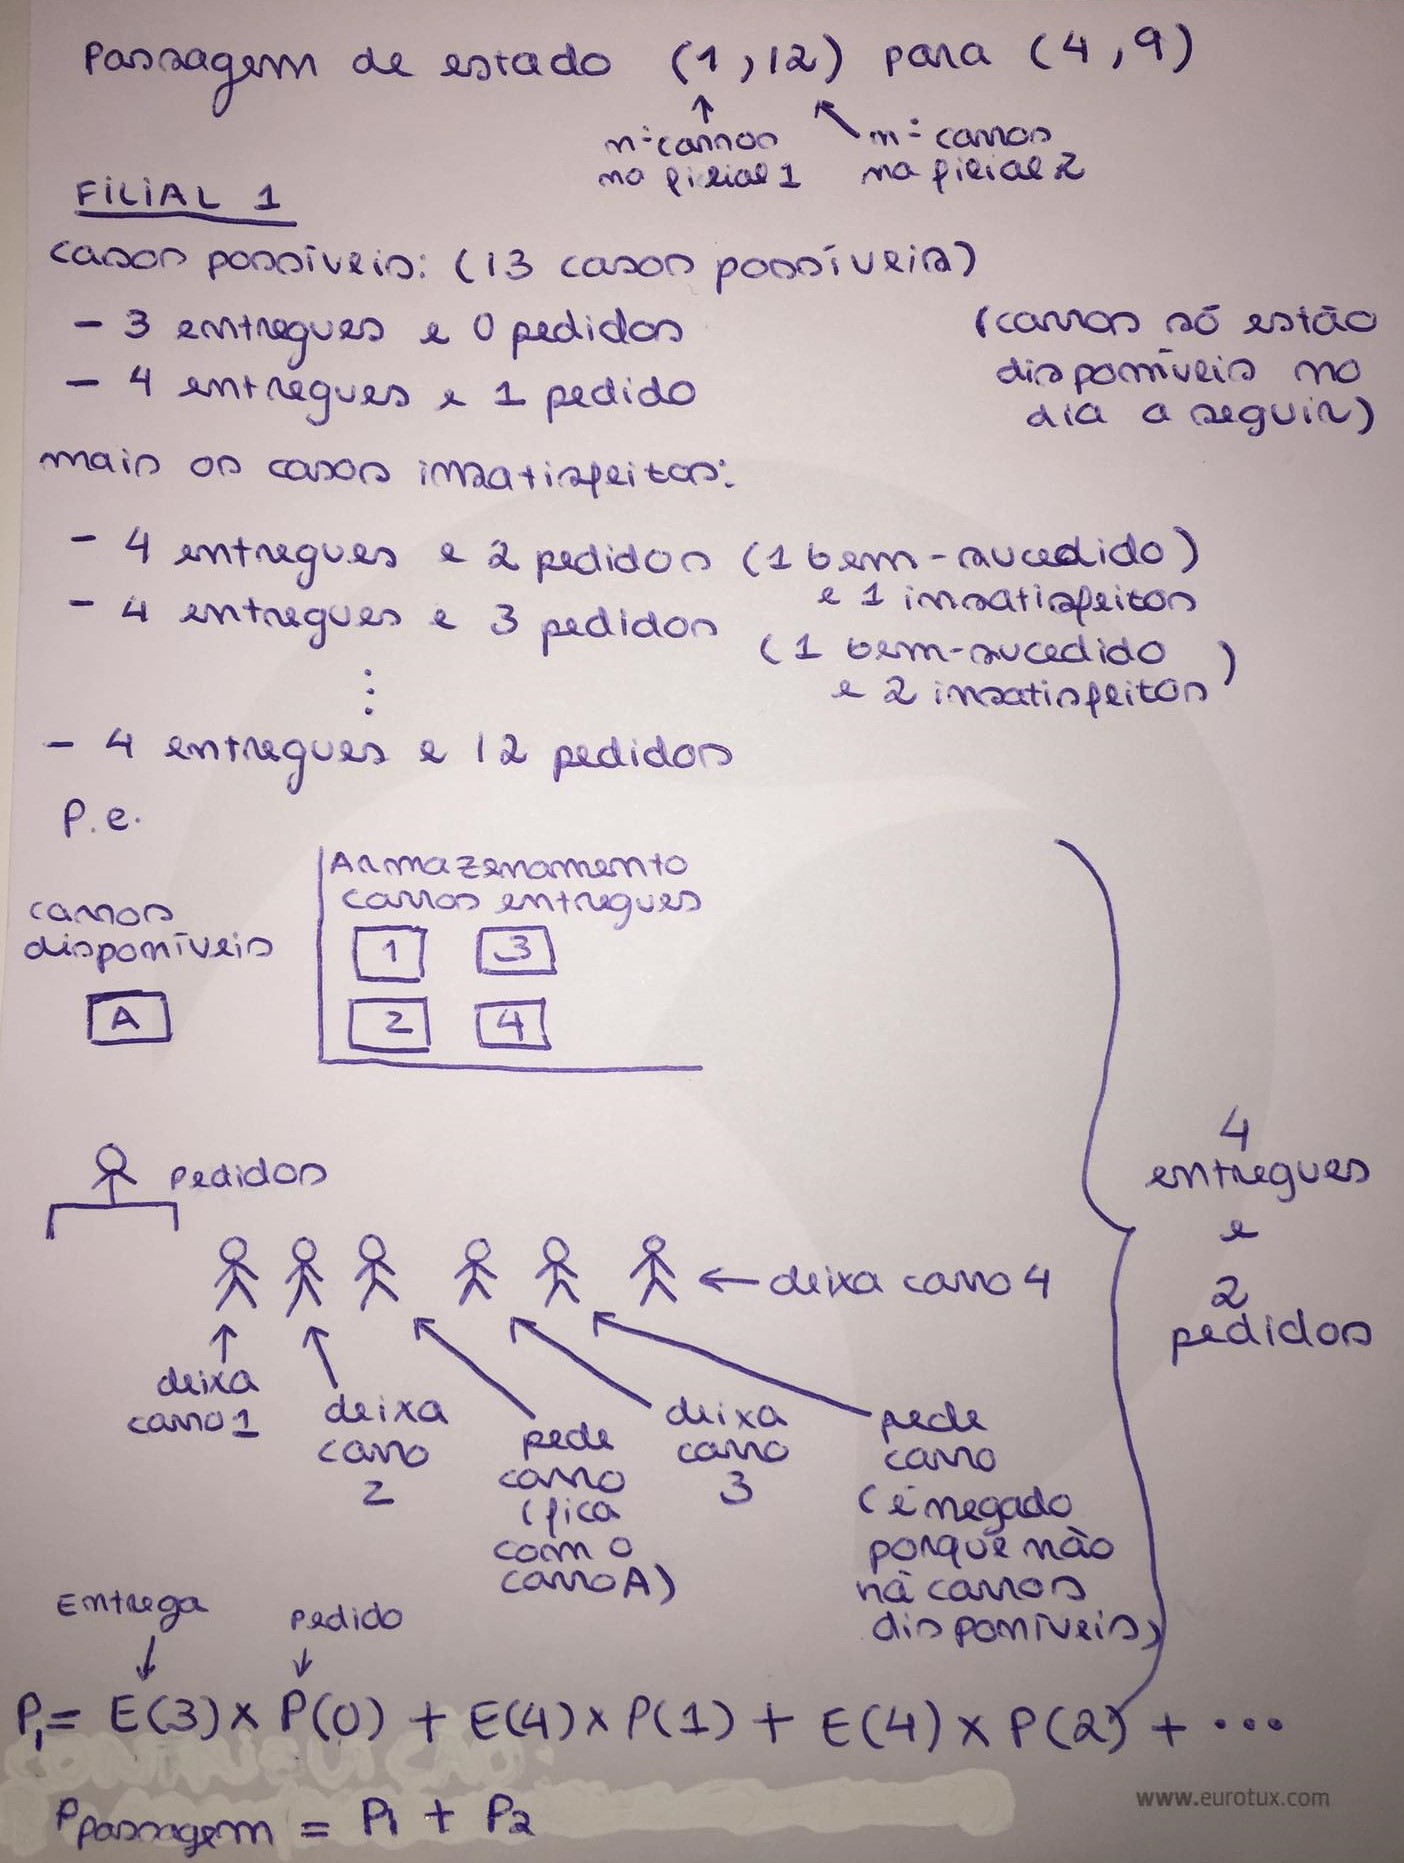 Passagem de estado (1,12) para (4,9)
nº carros
na filial 1
nº carros
na filial 2
FILIAL 1
casos possíveis: (13 casos possíveis)
- 3 entregues e 0 pedidos
- 4 entregues e 1 pedido
(carros só estão
disponíveis no
dia a seguir)
mais os casos insatisfeitos:
- 4 entregues e 2 pedidos (1 bem-sucedido)
e 1 insatisfeitos
- 4 entregues e 3 pedidos (1 bem-sucedido
e 2 insatisfeitos)
⋮
- 4 entregues e 12 pedidos
P.e.
carros
disponíveis
A
Armazenamento
carros entregues
1 3
2 4
4
entregues
e
2
pedidos
pedidos
deixa carro 4
deixa
carro 1
deixa
carro
2
pede
carro
(fica
com o
carro A)
deixa
carro
3
pede
carro
(é negado
porque não
há carros
disponíveis)
Entrega
pedido
P1 = E(3) x P(0) + E(4) x P(1) + E(4) x P(2) + ...
Ppassagem = P1 + P2
www.eurotux.com